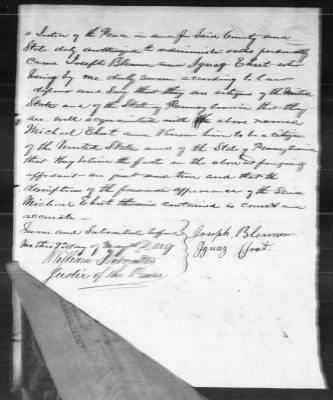 a Justice of the Peace in and for Said County and
State duly authorized to administer oaths personally
Came Joseph Blemmer and Ignaz Ehret who
being by me duly sworn according to law
depose and Say that they are citizens of the United
States and of the State of Pennsylvania that they
are well acquainted with the above named
Michael Ehret and Know him to be a citizen
of the United States and of the State of Pennsylvania
that they believe the facts in the above and foregoing
affidavit are just and true and that the
description of the personal appearance of the Said
Michael Ehret therein contained is correct and
accurate
Sworn and Subscribed before
me this 9 day of May A.D. 1887
Joseph Blemmer
William
Justice of the Peace